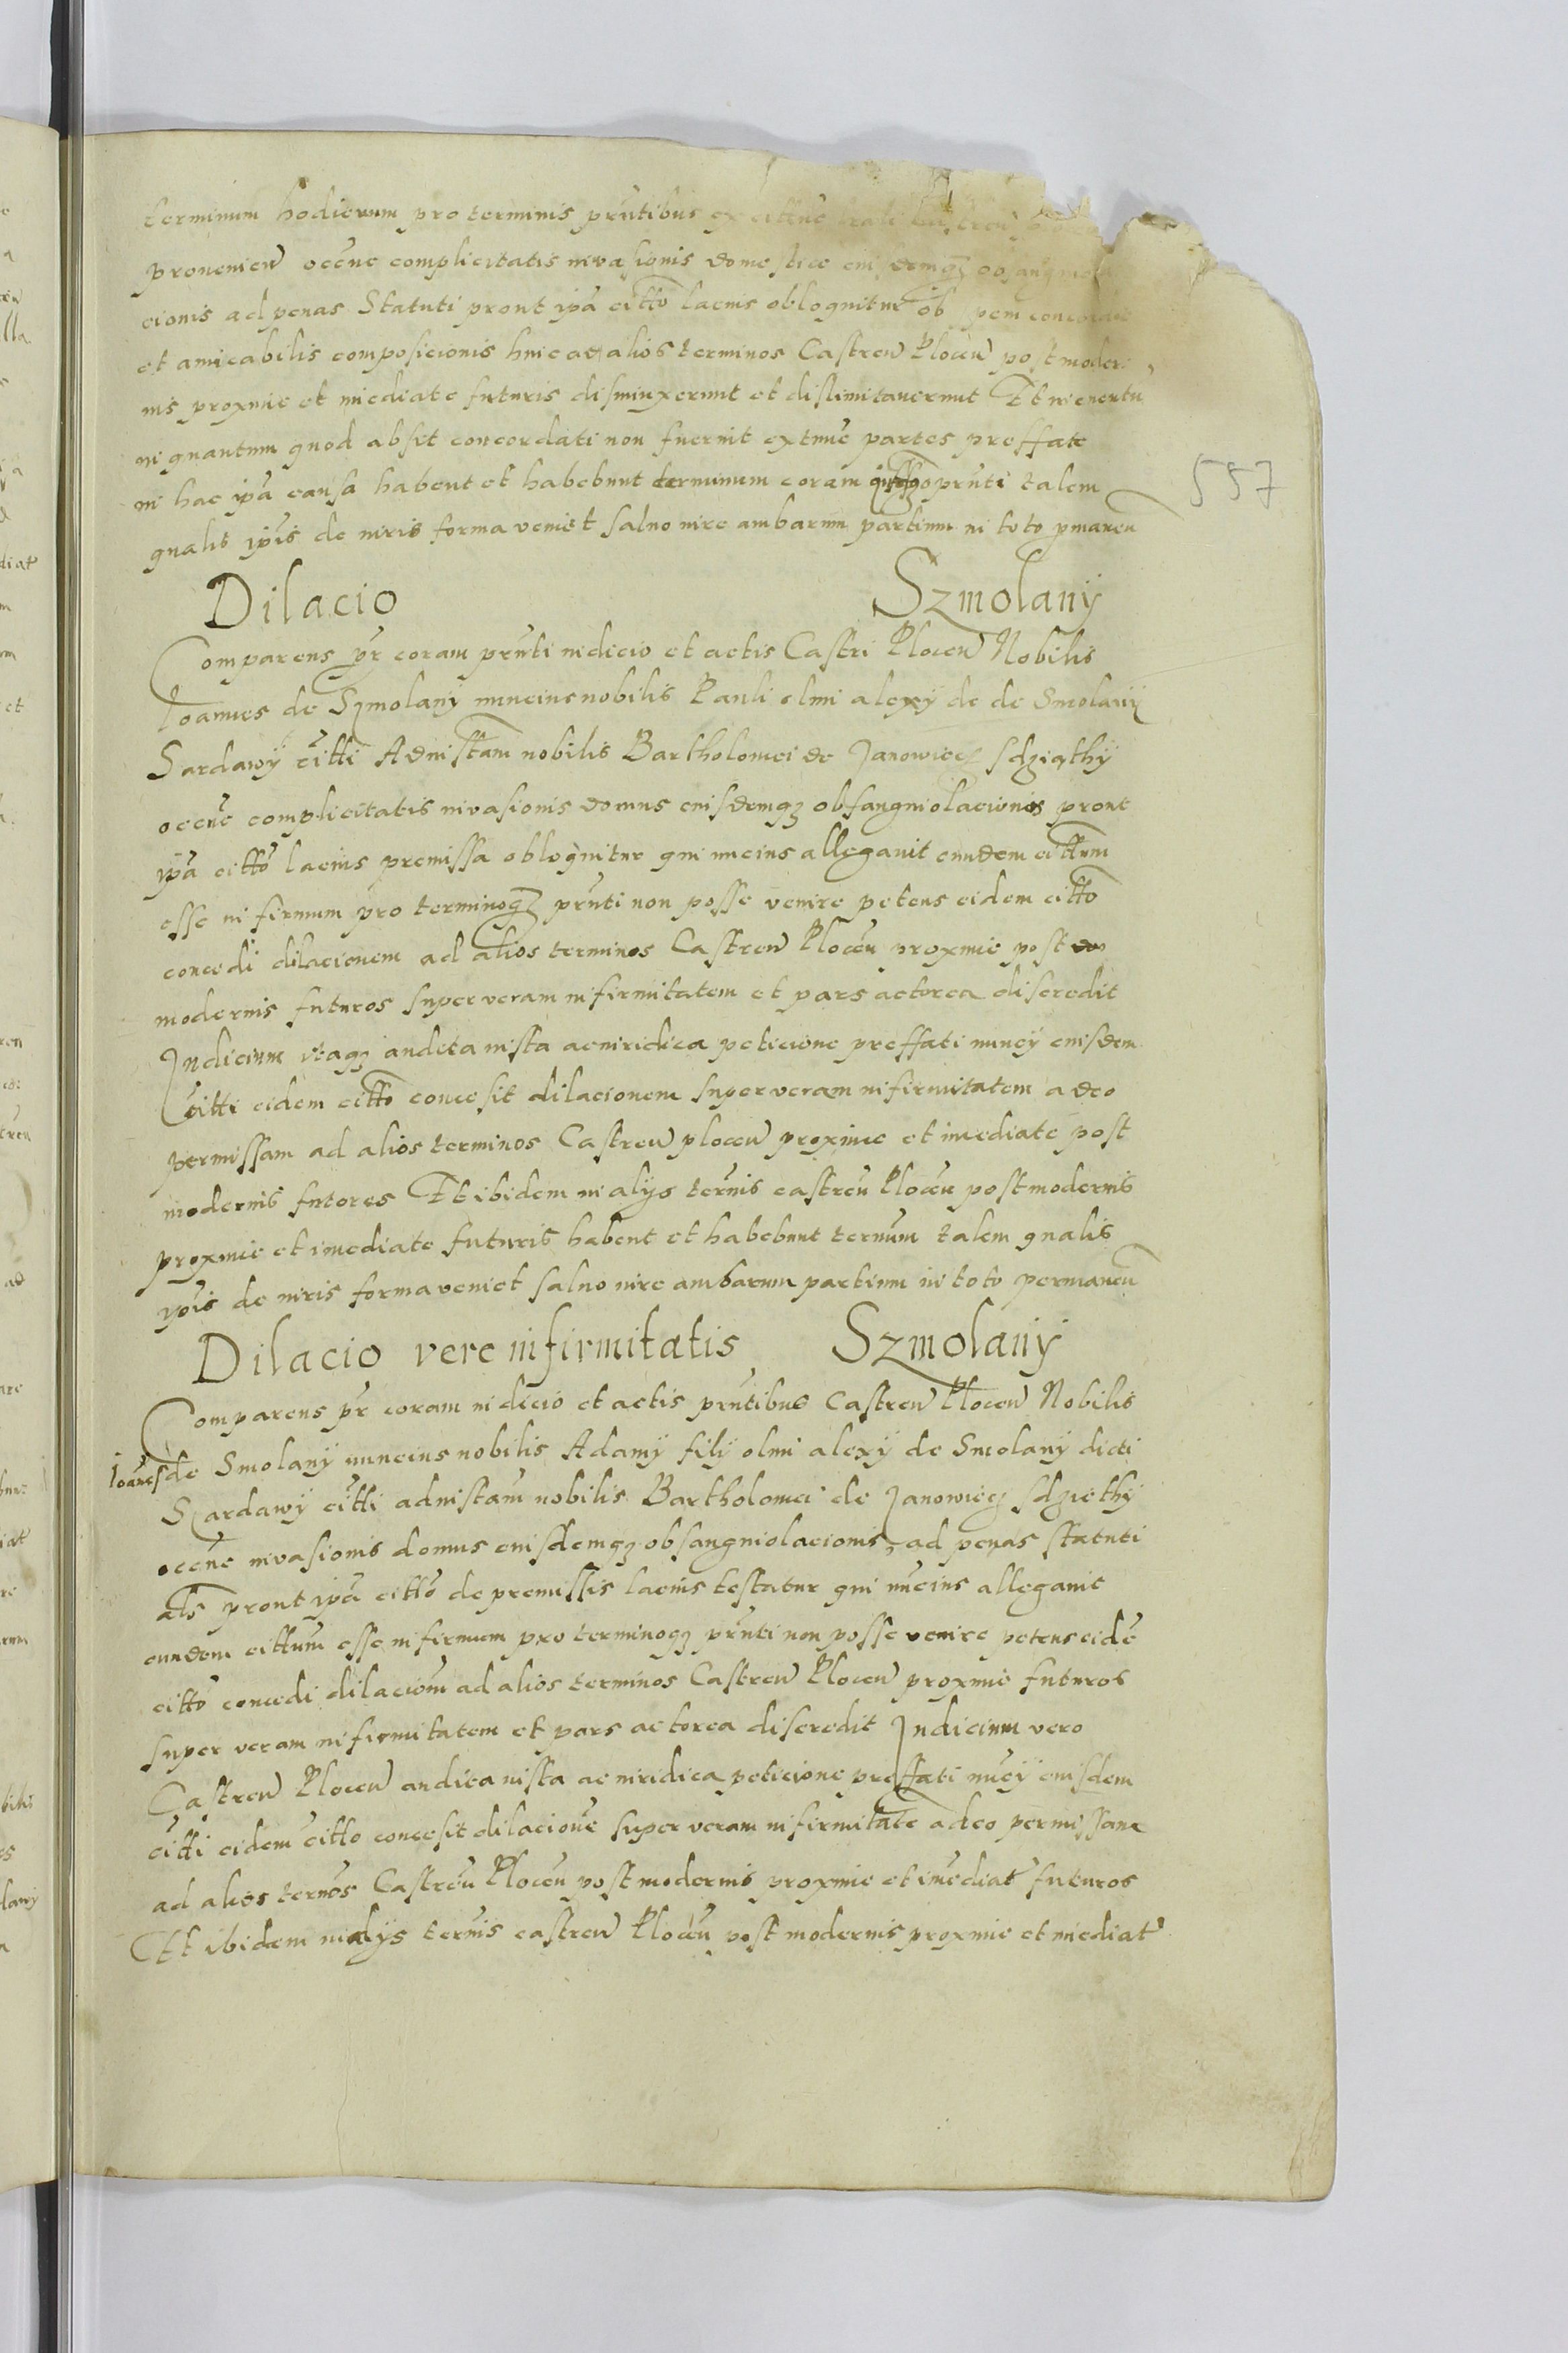 terminum hodiernum pro terminis prntibus ex cittne
provenien occne complicitatis invasionis domestice eiusdemqz obsangniola
cionis ad penas Statuti prout ipa citto lacius obloquitur ob spem concordie
et amicabilis composicionis huic ad alios terminos Castren Plocen post moder
nis proxime et imediate futuris disiniuxerunt et dislimitaverunt Et in eventu
in quantum quod absit concordati non fuerint extunc partes preffate
in hac ipa causa habent et habebunt terminum coram prnti talem
qualis ipis de iuris forma veniet salvo iure ambarum partium in toto pmanen
557
Dilacio Szmolany
Comparens pr coram prnti iudicio et actis Castri Plocen Nobilis
Ioannes de Szmolany nuncius nobilis Pauli olmi alexy de de Smolany
Sardawy citti Ad instam nobilis Bartholomei de Janowiecz sdziathy
occne complicitatis invasionis domus eiusdemqz obsangniolacionis prout
ipa citto lacius premissa obloquitur qui nucius allegavit eundem cittum
esse infirmum pro terminoqz prnti non posse venire petens eidem citto
concedi dilacionem ad alios terminos Castren Plocen proxime post
modernis futuros super veram infirmitatem et pars actorea discredit
Judicium itaqz audita iusta ac iuridica peticione preffati nuncy eiusdem
citti eidem citto concesit dilacionem super veram infirmitatem adeo
permissam ad alios terminos Castren plocen proxime et imediate post
modernis futores Et ibidem in alys termis castren Plocen post modernis
proxime et imediate futuris habent et habebunt termum talem qualis
ipis de iuris forma veniet salvo iure ambarum partium in toto permanen
Dilacio vere infirmitatis Szmolany
Comparens pr coram iudicio et actis prntibus Castren Plocen Nobilis
Ioanes de Smolany nuncius nobilis Adamy fily olmi alexy de Smolany dicti
Szardawy citti ad instam nobilis Bartholomei de Janowiecz sdziethy
occne invasionis domus eiusdemqz obsangniolacionis, ad penas statuti
als prout ipa citto de premissis lacius testatur qui nucius allegavit
eundem cittum esse infirmum pro terminoqz prnti non posse venire petens eide
citto concedi dilaciom ad alios terminos Castren Plocen proxime futuros
super veram infirmitatem et pars actorea discredit Judicium vero
Castren Plocen audita iusta ac iuridica peticione preffati nucy eiusdem
citti eidem citto concesit dilacione super veram infirmitate adeo permissam
ad alios termos Castren Plocen post modernis proxime et imediat futuros
Et ibidem in alys termis castren Plocen post modernis proxime et imediat